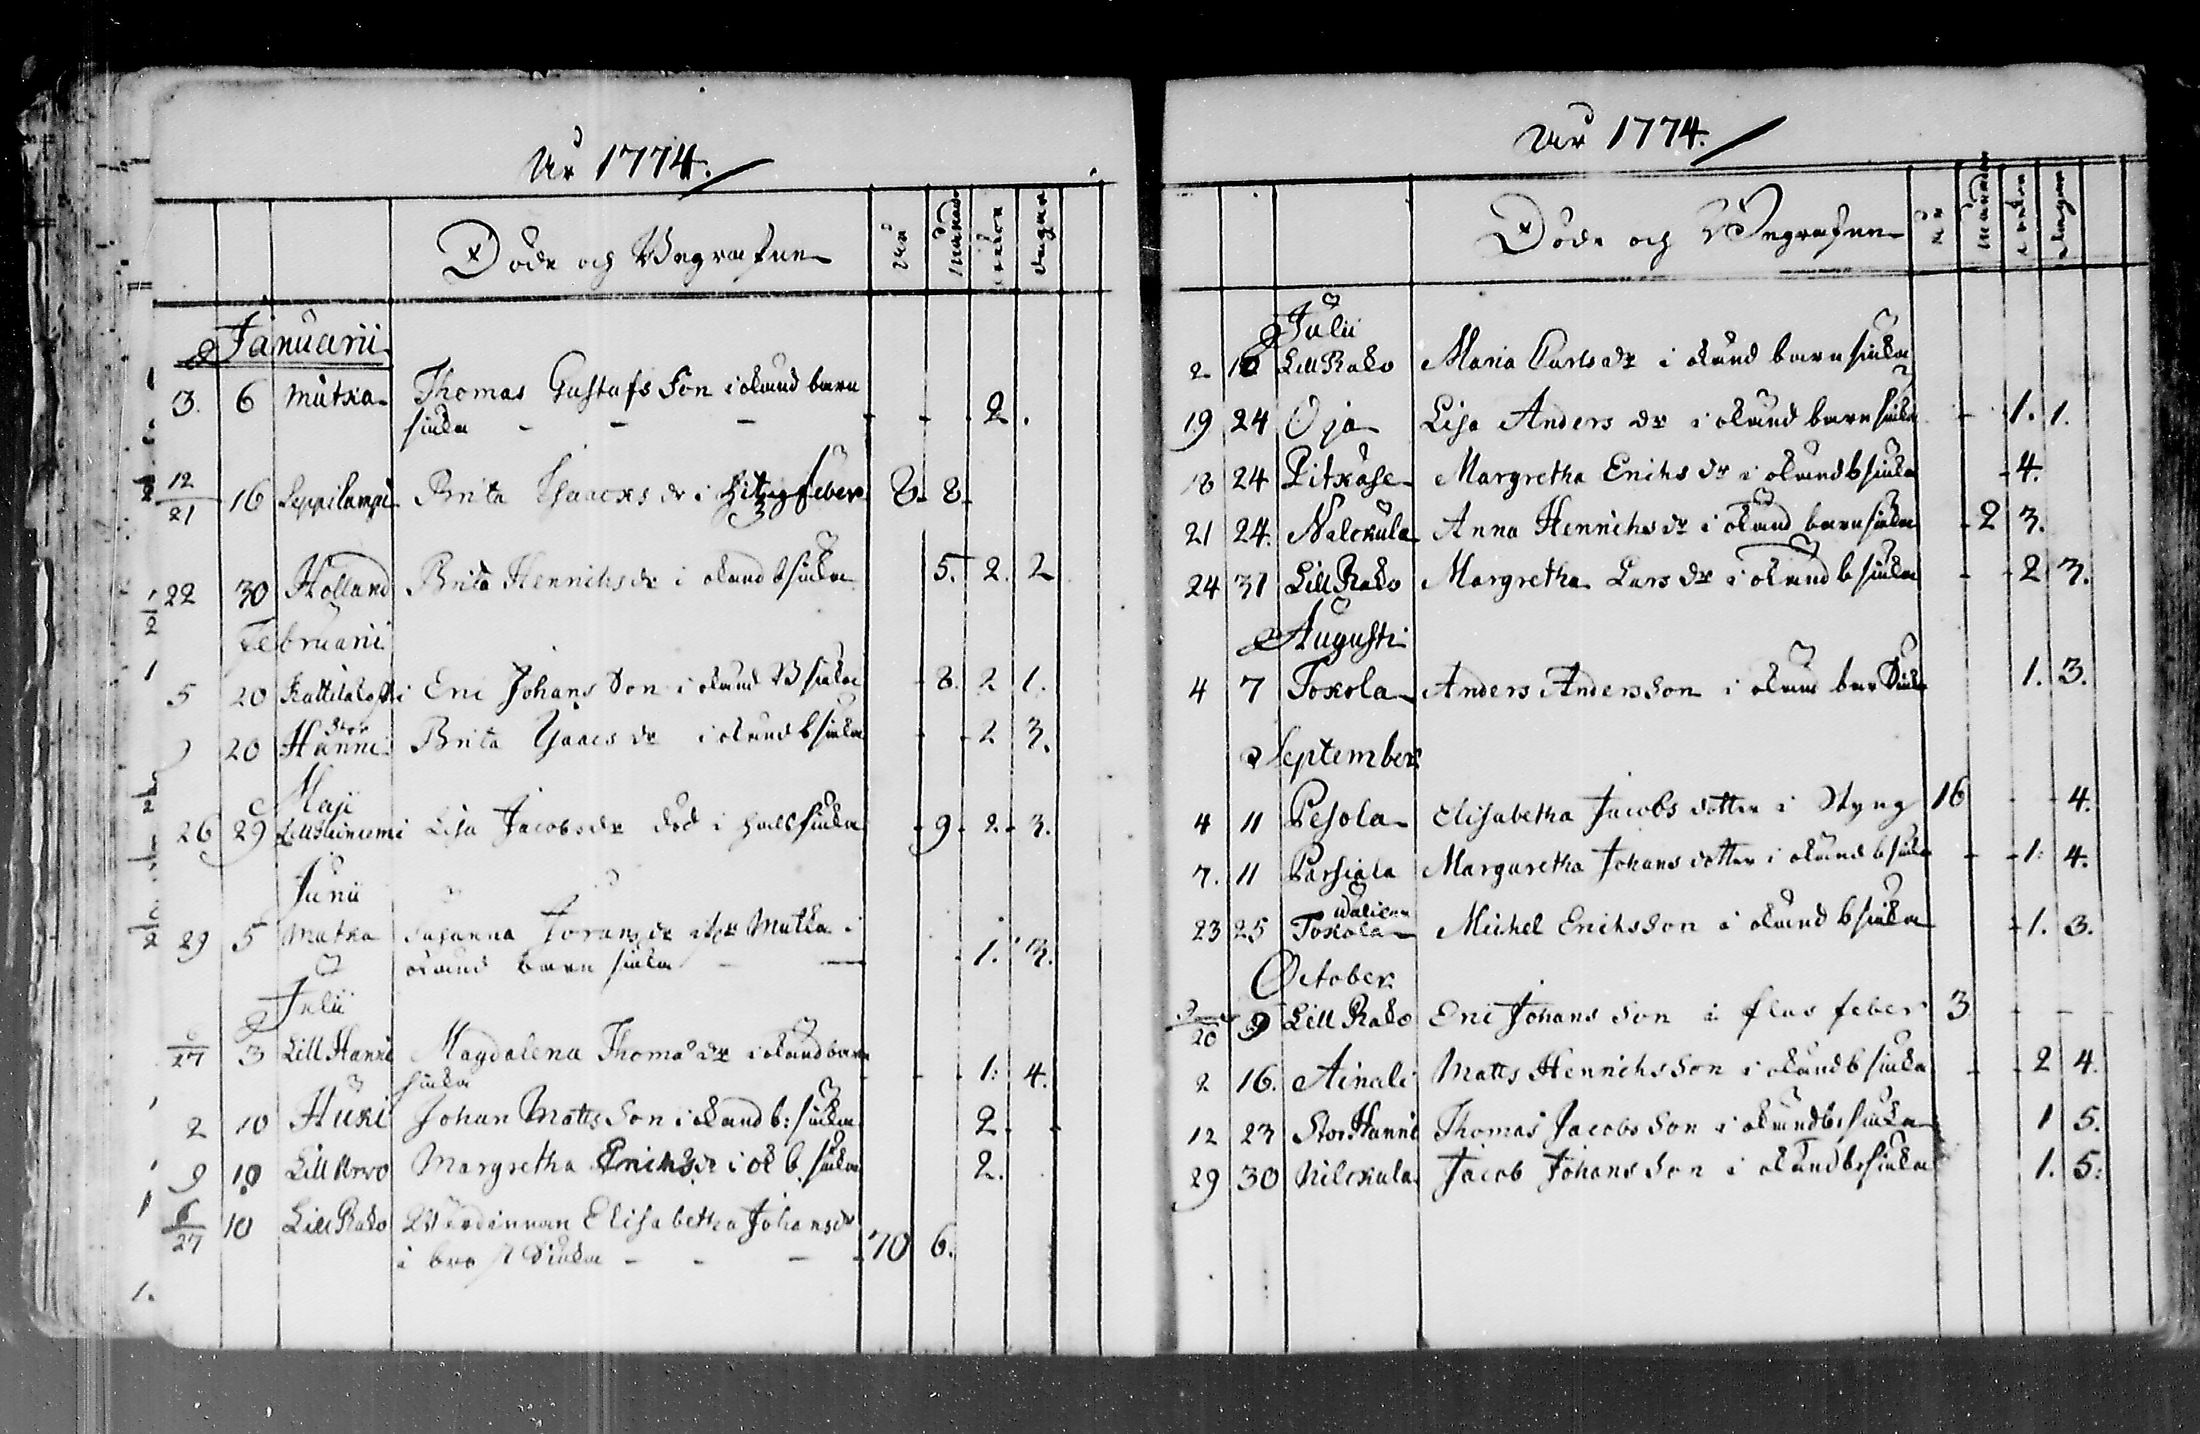 År 1774.
Döde och Begrafne
år
månad
wekor
dagar
Januarii
3. 6 Matka Thomas Gustafs Son i okänd barn
siuka - - - - - 2.
12/21 16 Seppilampi Brita Isaacks dr i hitzig feber 8 8
22 30 Holland Brita Henrichs dr i okänd b siuka 5. 2. 2
Februarii
5 20 Kattilakoski Eric Johans Son i okänd B siuka 8. 2 1.
9 20 Stor Hanni Brita Isaacs dr i okänd b siuka - 2 3.
Maji
26 29 Lisa Jacobs dr död i hals siuka 9. 2. 3.
Junii
29 5 Matka Susanna Görans dr ifr Matka i
okänd barn siuka - 1. 3.
Julii
/27 3 Lill Hanni Magdalena Thomas dr i okänd barn
siuka - - 1: 4.
2 10 Huki Johan Matts Son i okänd b: siuka 2.
9 10 Lill Margretha Erichs dr i ok b. siuka 2.
6/27 10 Lill Rako Wärdinnan Elisabetha Johans dr
i brost Siuka - - - 70 6.
År 1774.
Döde och Begrafne
år
månader
wekor
dagar
Julii
2 10 Lill Rako Maria Carls dr i okänd barn siuka
19 24 Oja Lisa Anders dr i okänd barn siuka - 1. 1.
18 24 Pitkäse Margretha Erichs dr i okänd b siuka - 4.
21 24. Nalckula Anna Henrichs dr i okänd barn siuka - 2 3.
24 31 Lill Rako Margretha Lars dr i okänd b siuka - - 2 3.
Augusti
4 7 Toxola Anders Andersson i okänd bar Siuka 1. 3.
September
4 11 Pesola Elisabetha Jacobs dotter i Styng 16 - - 4.
7. 11 Passiala Margaretha Johans dotter i okänd b siuka - - 1: 4.
23 25 Toxola Michel Erichsson i okänd b siuka - 1. 3.
October
/20 9 Lill Rako Eric Johans Son i flus feber 3 - - -
2 16. Ainali Matts Henrichs Son i okänd b siuka - - 2 4.
12 23 Stor Hanni Thomas Jacobs Son i okänd b: siuka 1 5.
29 30 Nilckula Jacob Johans Son i okänd b: siuka 1. 5: